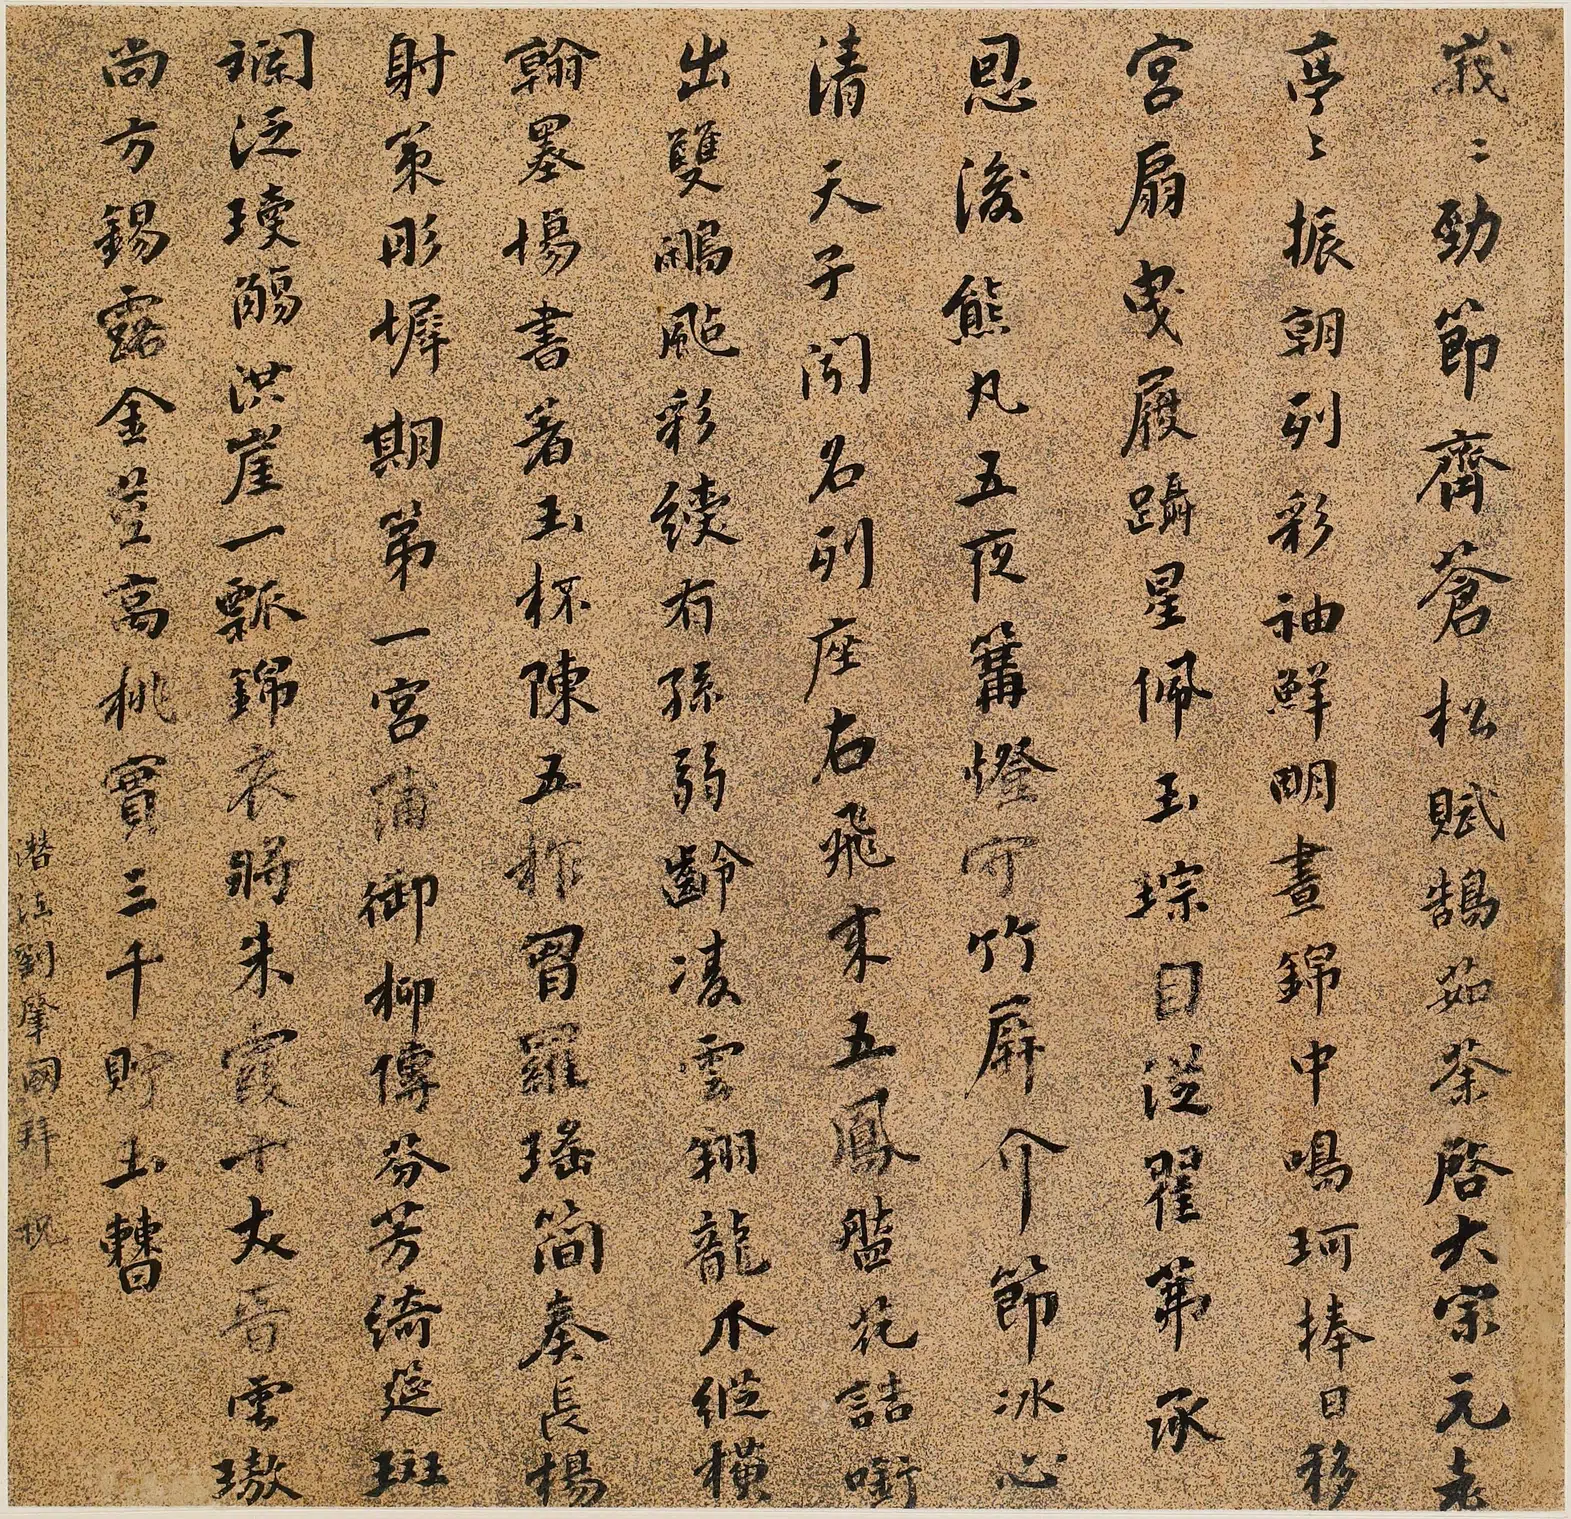 峩〻勁節齊蒼松賦鵠茹荼啓大宗元老
亭〻振朝列彩袖鮮明晝錦中鳴珂捧日移
宮扇曳履躡星佩玉琮目送翟茀承
恩浚熊丸五夜篝燈竹屏介節冰心
清天子聞名列座右飛來五鳳艦花誥銜
出雙鵰颭彩繞有孫弱齡凌雲翔龍爪縱橫
翰墨場書著玉杯陳五柞胃羅瑤簡奏長楊
射策彤墀期第一宮蒲御柳傳芬芳綺筵斑
斕泛瓊觴洪崖一瓢錦衣將朱霞十丈雲璈
尚方錫露金莖高桃實三千貯玉
潛江劉肇國拜祝